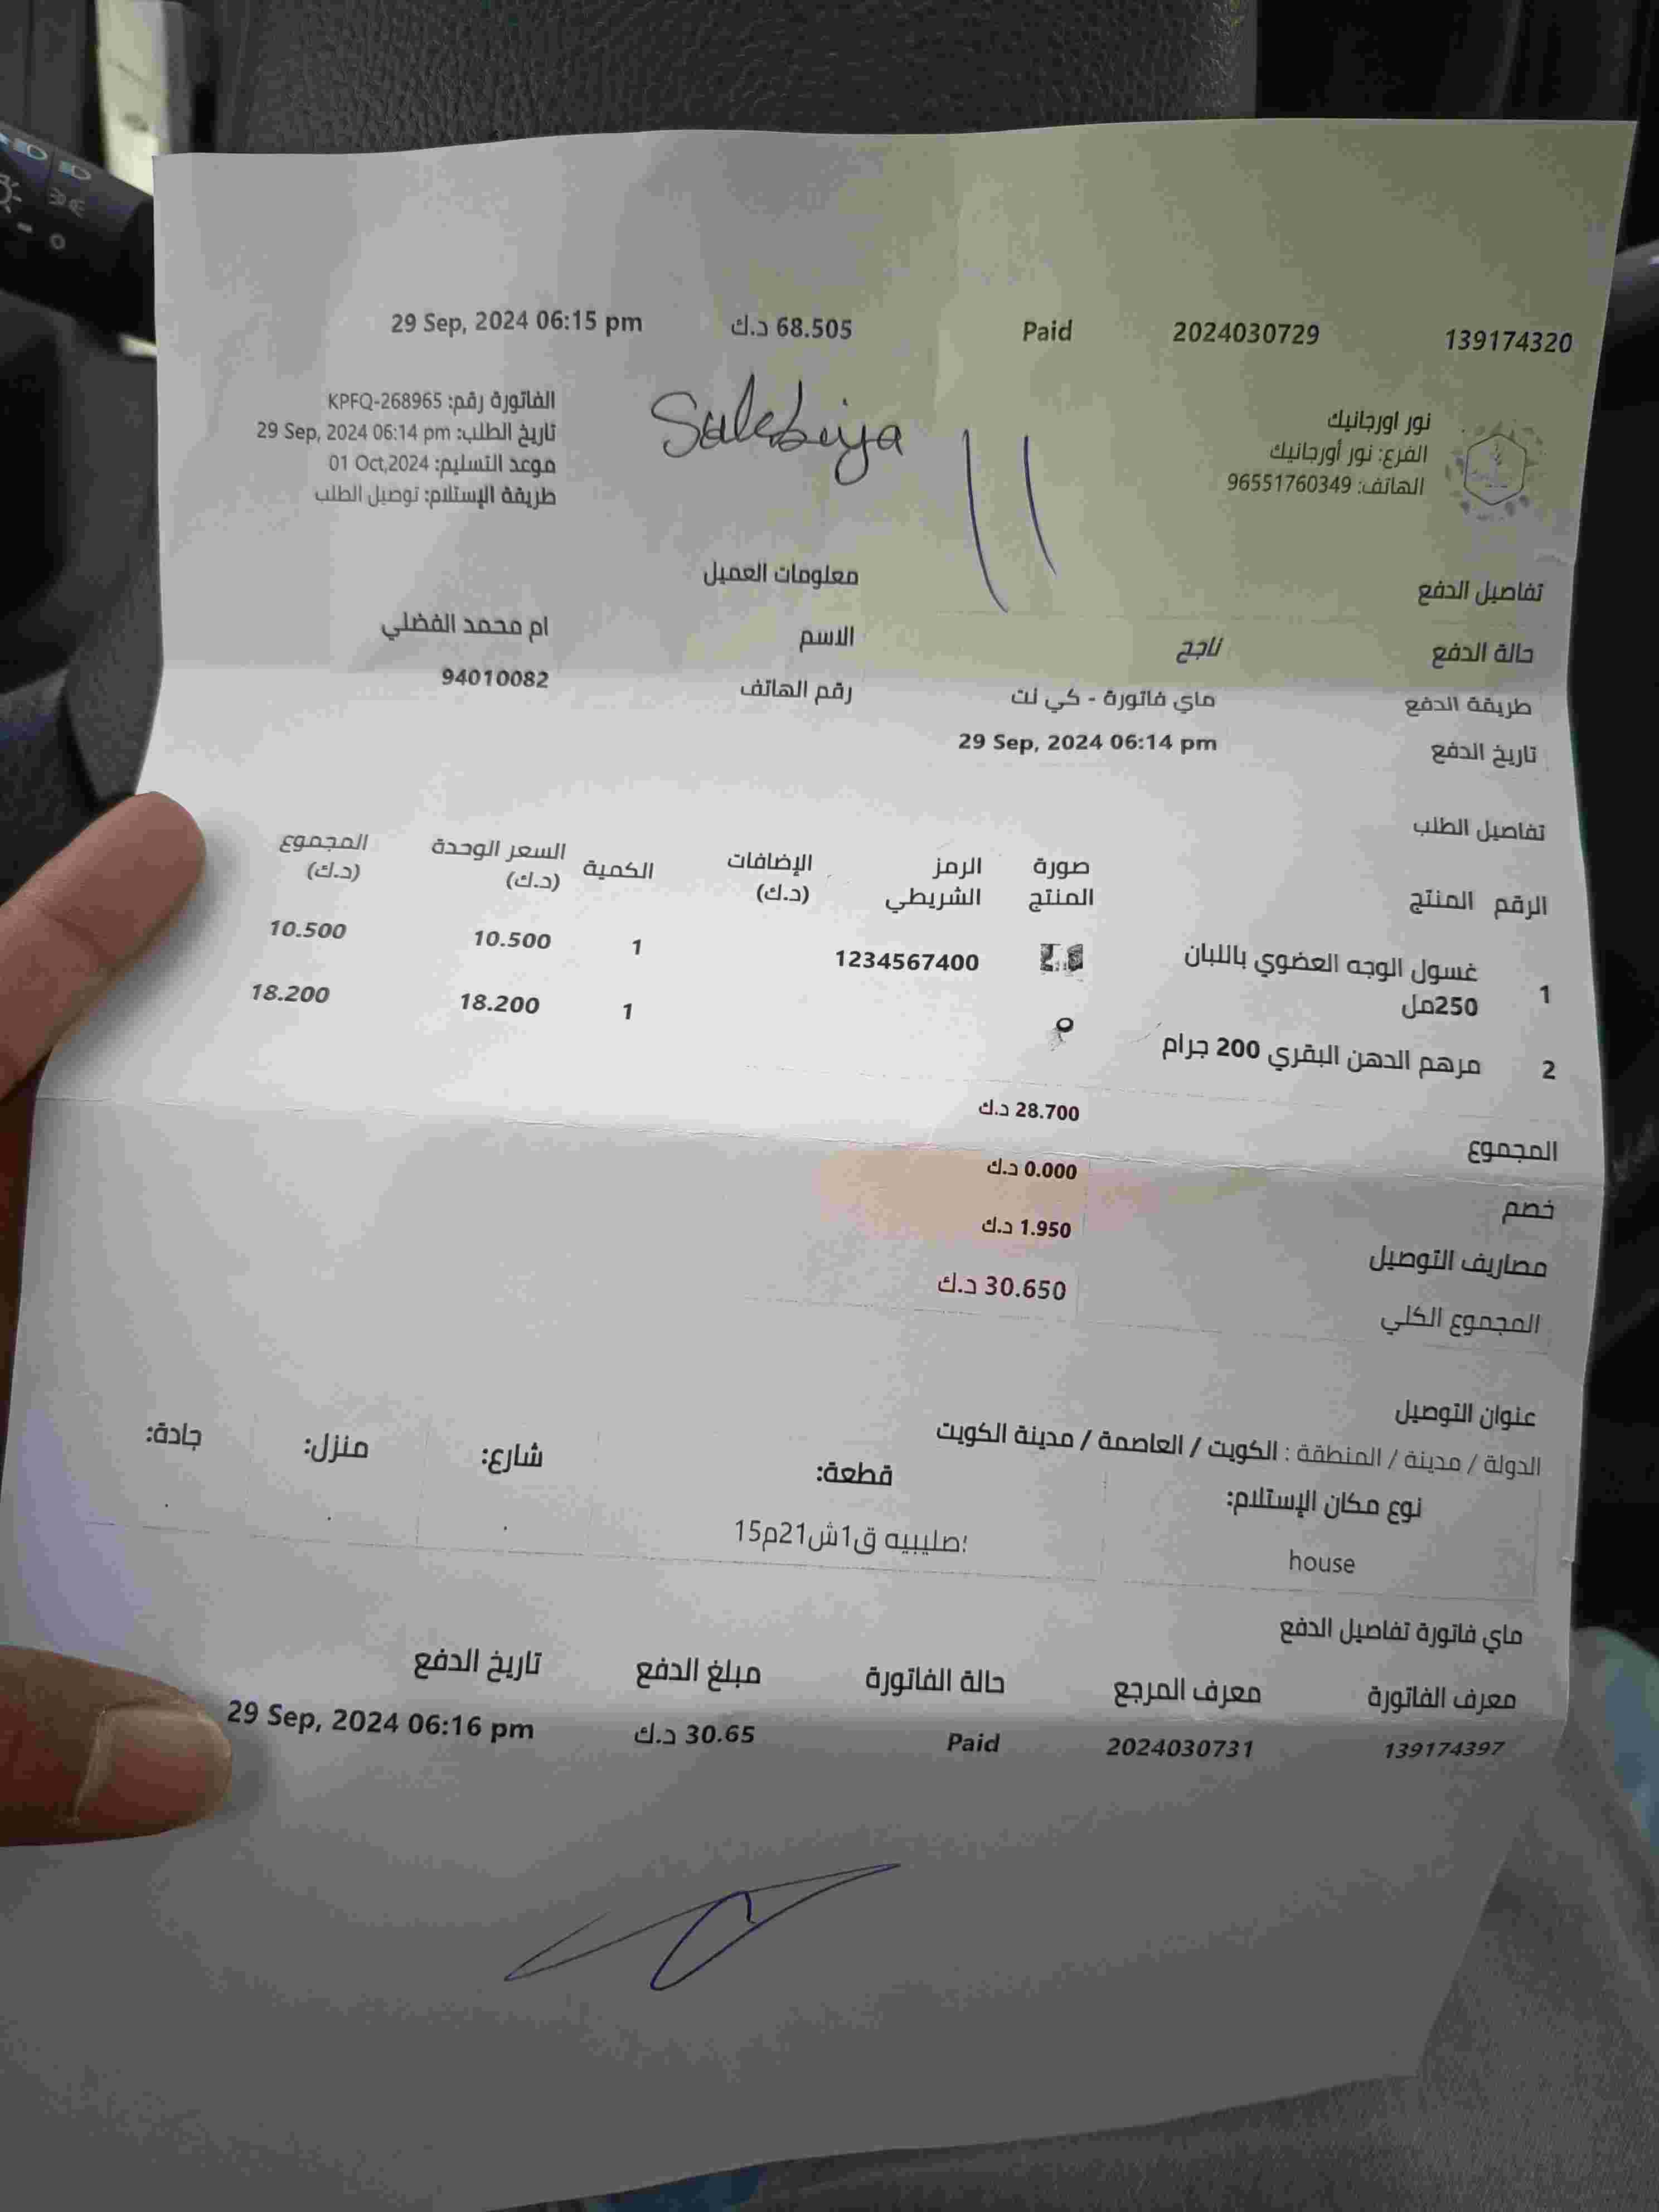 139174320 2024030729 Paid 68.505 د.ك 29 Sep, 2024 06:15 pm
نور اورجانيك
الفرع: نور أورجانيك
الهاتف: 96551760349
Salebiya
الفاتورة رقم: KPFQ-268965
تاريخ الطلب: 29 Sep, 2024 06:14 pm
موعد التسليم: 01 Oct,2024
طريقة الإستلام: توصيل الطلب
تفاصيل الدفع
حالة الدفع ناجح
طريقة الدفع ماي فاتورة - كي نت
تاريخ الدفع 29 Sep, 2024 06:14 pm
معلومات العميل
الاسم ام محمد الفضلي
رقم الهاتف 94010082
تفاصيل الطلب
الرقم المنتج صورة المنتج الرمز الشريطي الإضافات (د.ك) الكمية السعر الوحدة (د.ك) المجموع (د.ك)
1 غسول الوجه العضوي باللبان 1234567400 1 10.500 10.500
250مل
2 مرهم الدهن البقري 200 جرام 1 18.200 18.200
المجموع 28.700 د.ك
خصم 0.000 د.ك
مصاريف التوصيل 1.950 د.ك
المجموع الكلي 30.650 د.ك
عنوان التوصيل
الدولة / مدينة / المنطقة : الكويت / العاصمة / مدينة الكويت
نوع مكان الإستلام: قطعة: شارع: منزل: جادة:
house ؛صليبيه ق1ش21م15 . . .
ماي فاتورة تفاصيل الدفع
معرف الفاتورة معرف المرجع حالة الفاتورة مبلغ الدفع تاريخ الدفع
139174397 2024030731 Paid 30.65 د.ك 29 Sep, 2024 06:16 pm